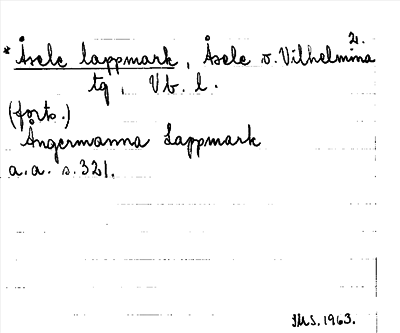 2.
* Åsele lappmark, Åsele o. Vilhelmina
tg, Vb. l.
(forts.)
Ångermanna Lappmark
a.a. s. 321.
IMS. 1963.